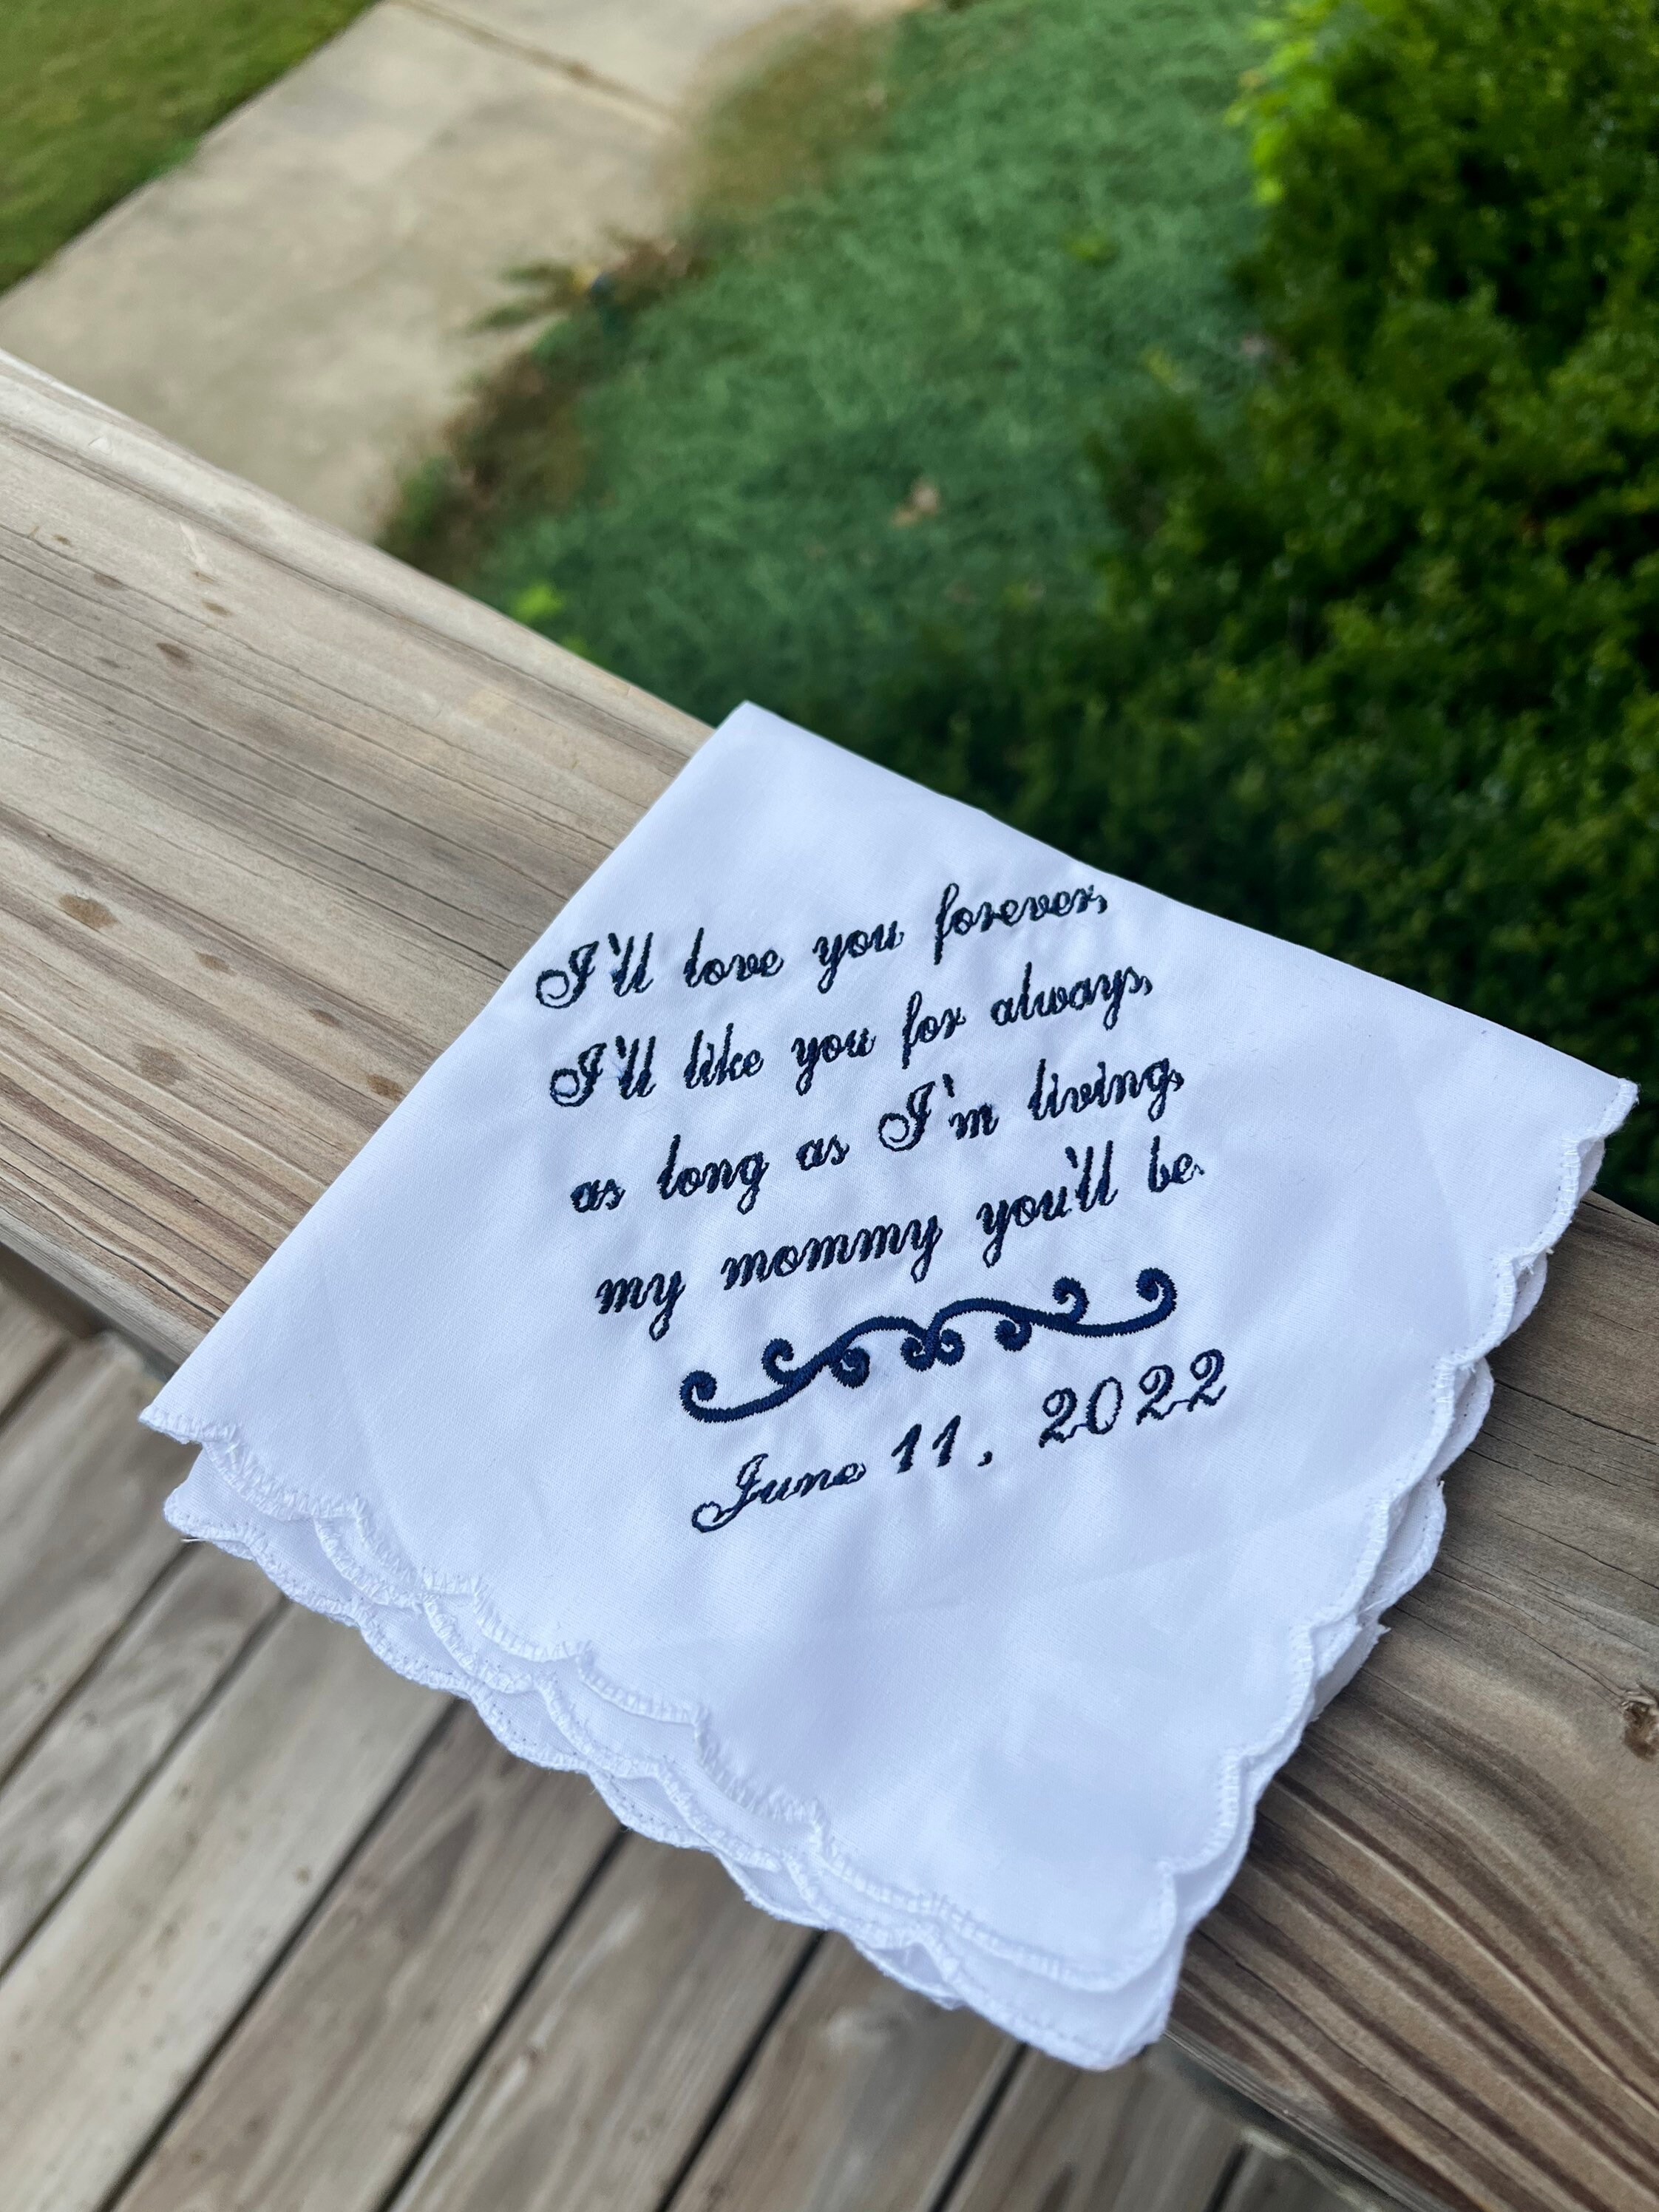 I'll love you forever,
I'll like you for always,
as long as I'm living,
my mommy you'll be.
June 11, 2022